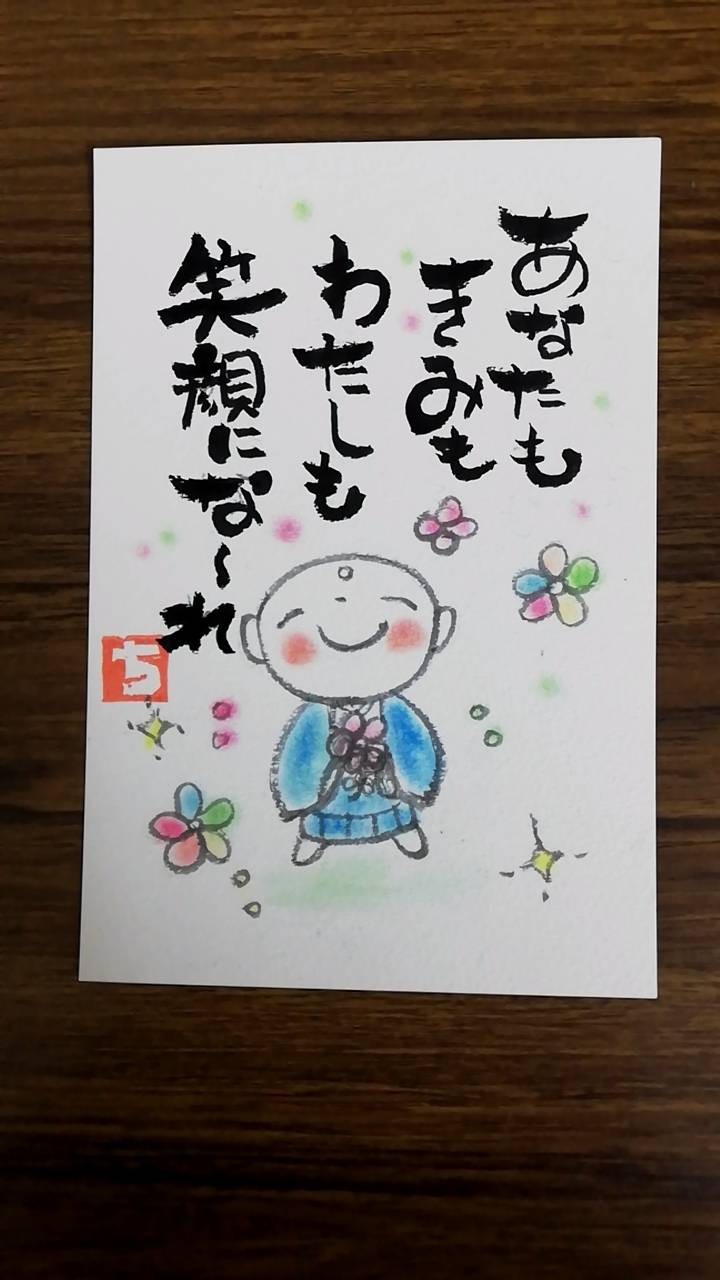 あなたも
きみも
わたしも
笑顔にな〜れ
ち